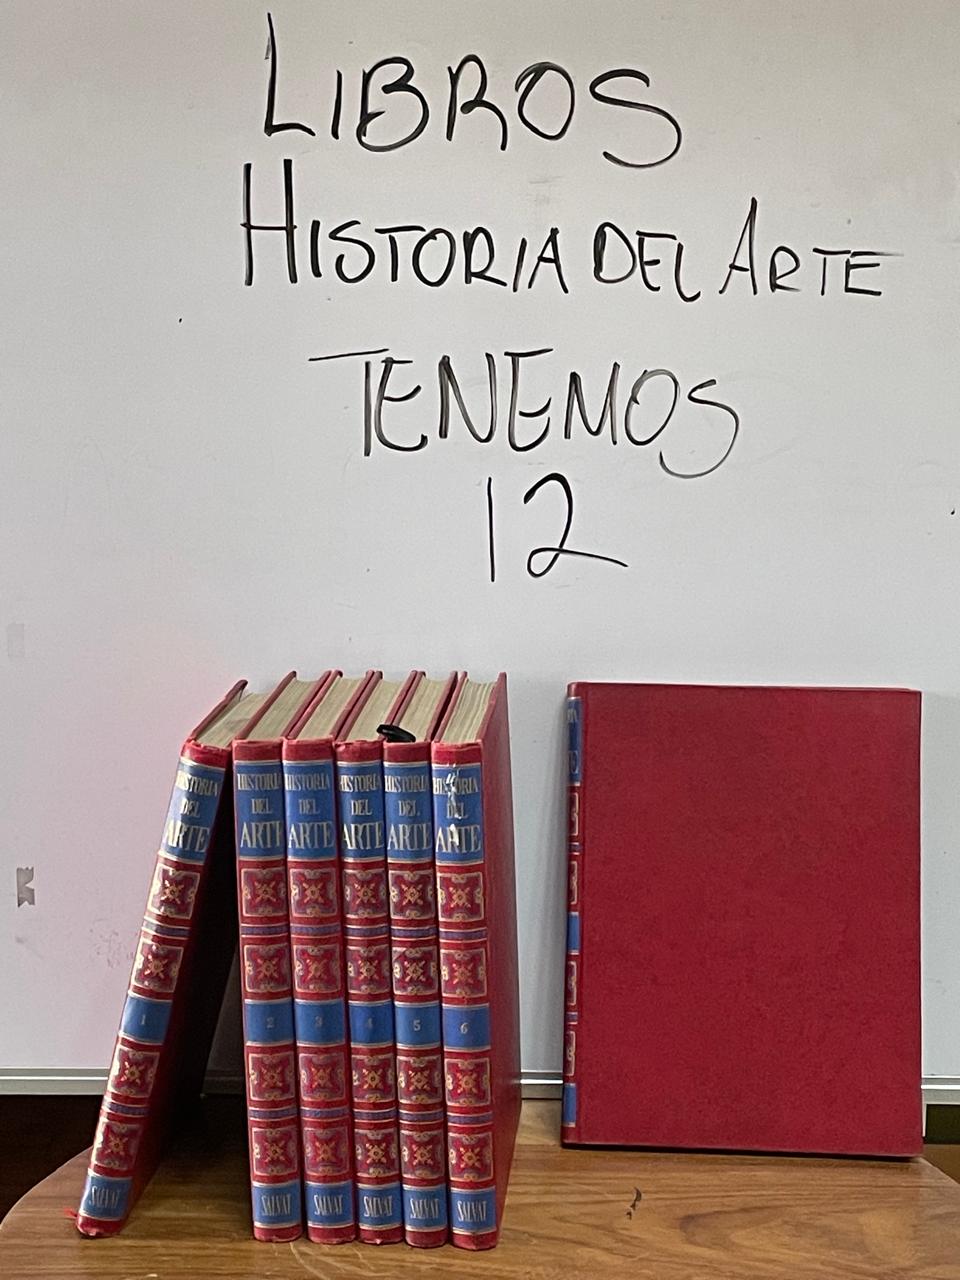 LIBROS
HISTORIA DEL ARTE
TENEMOS
12
HISTORIA
DEL
ARTE
1
SALVAT
HISTORIA
DEL
ARTE
2
SALVAT
HISTORIA
DEL
ARTE
3
SALVAT
HISTORIA
DEL
ARTE
4
SALVAT
HISTORIA
DEL
ARTE
5
SALVAT
HISTORIA
DEL
ARTE
6
SALVAT